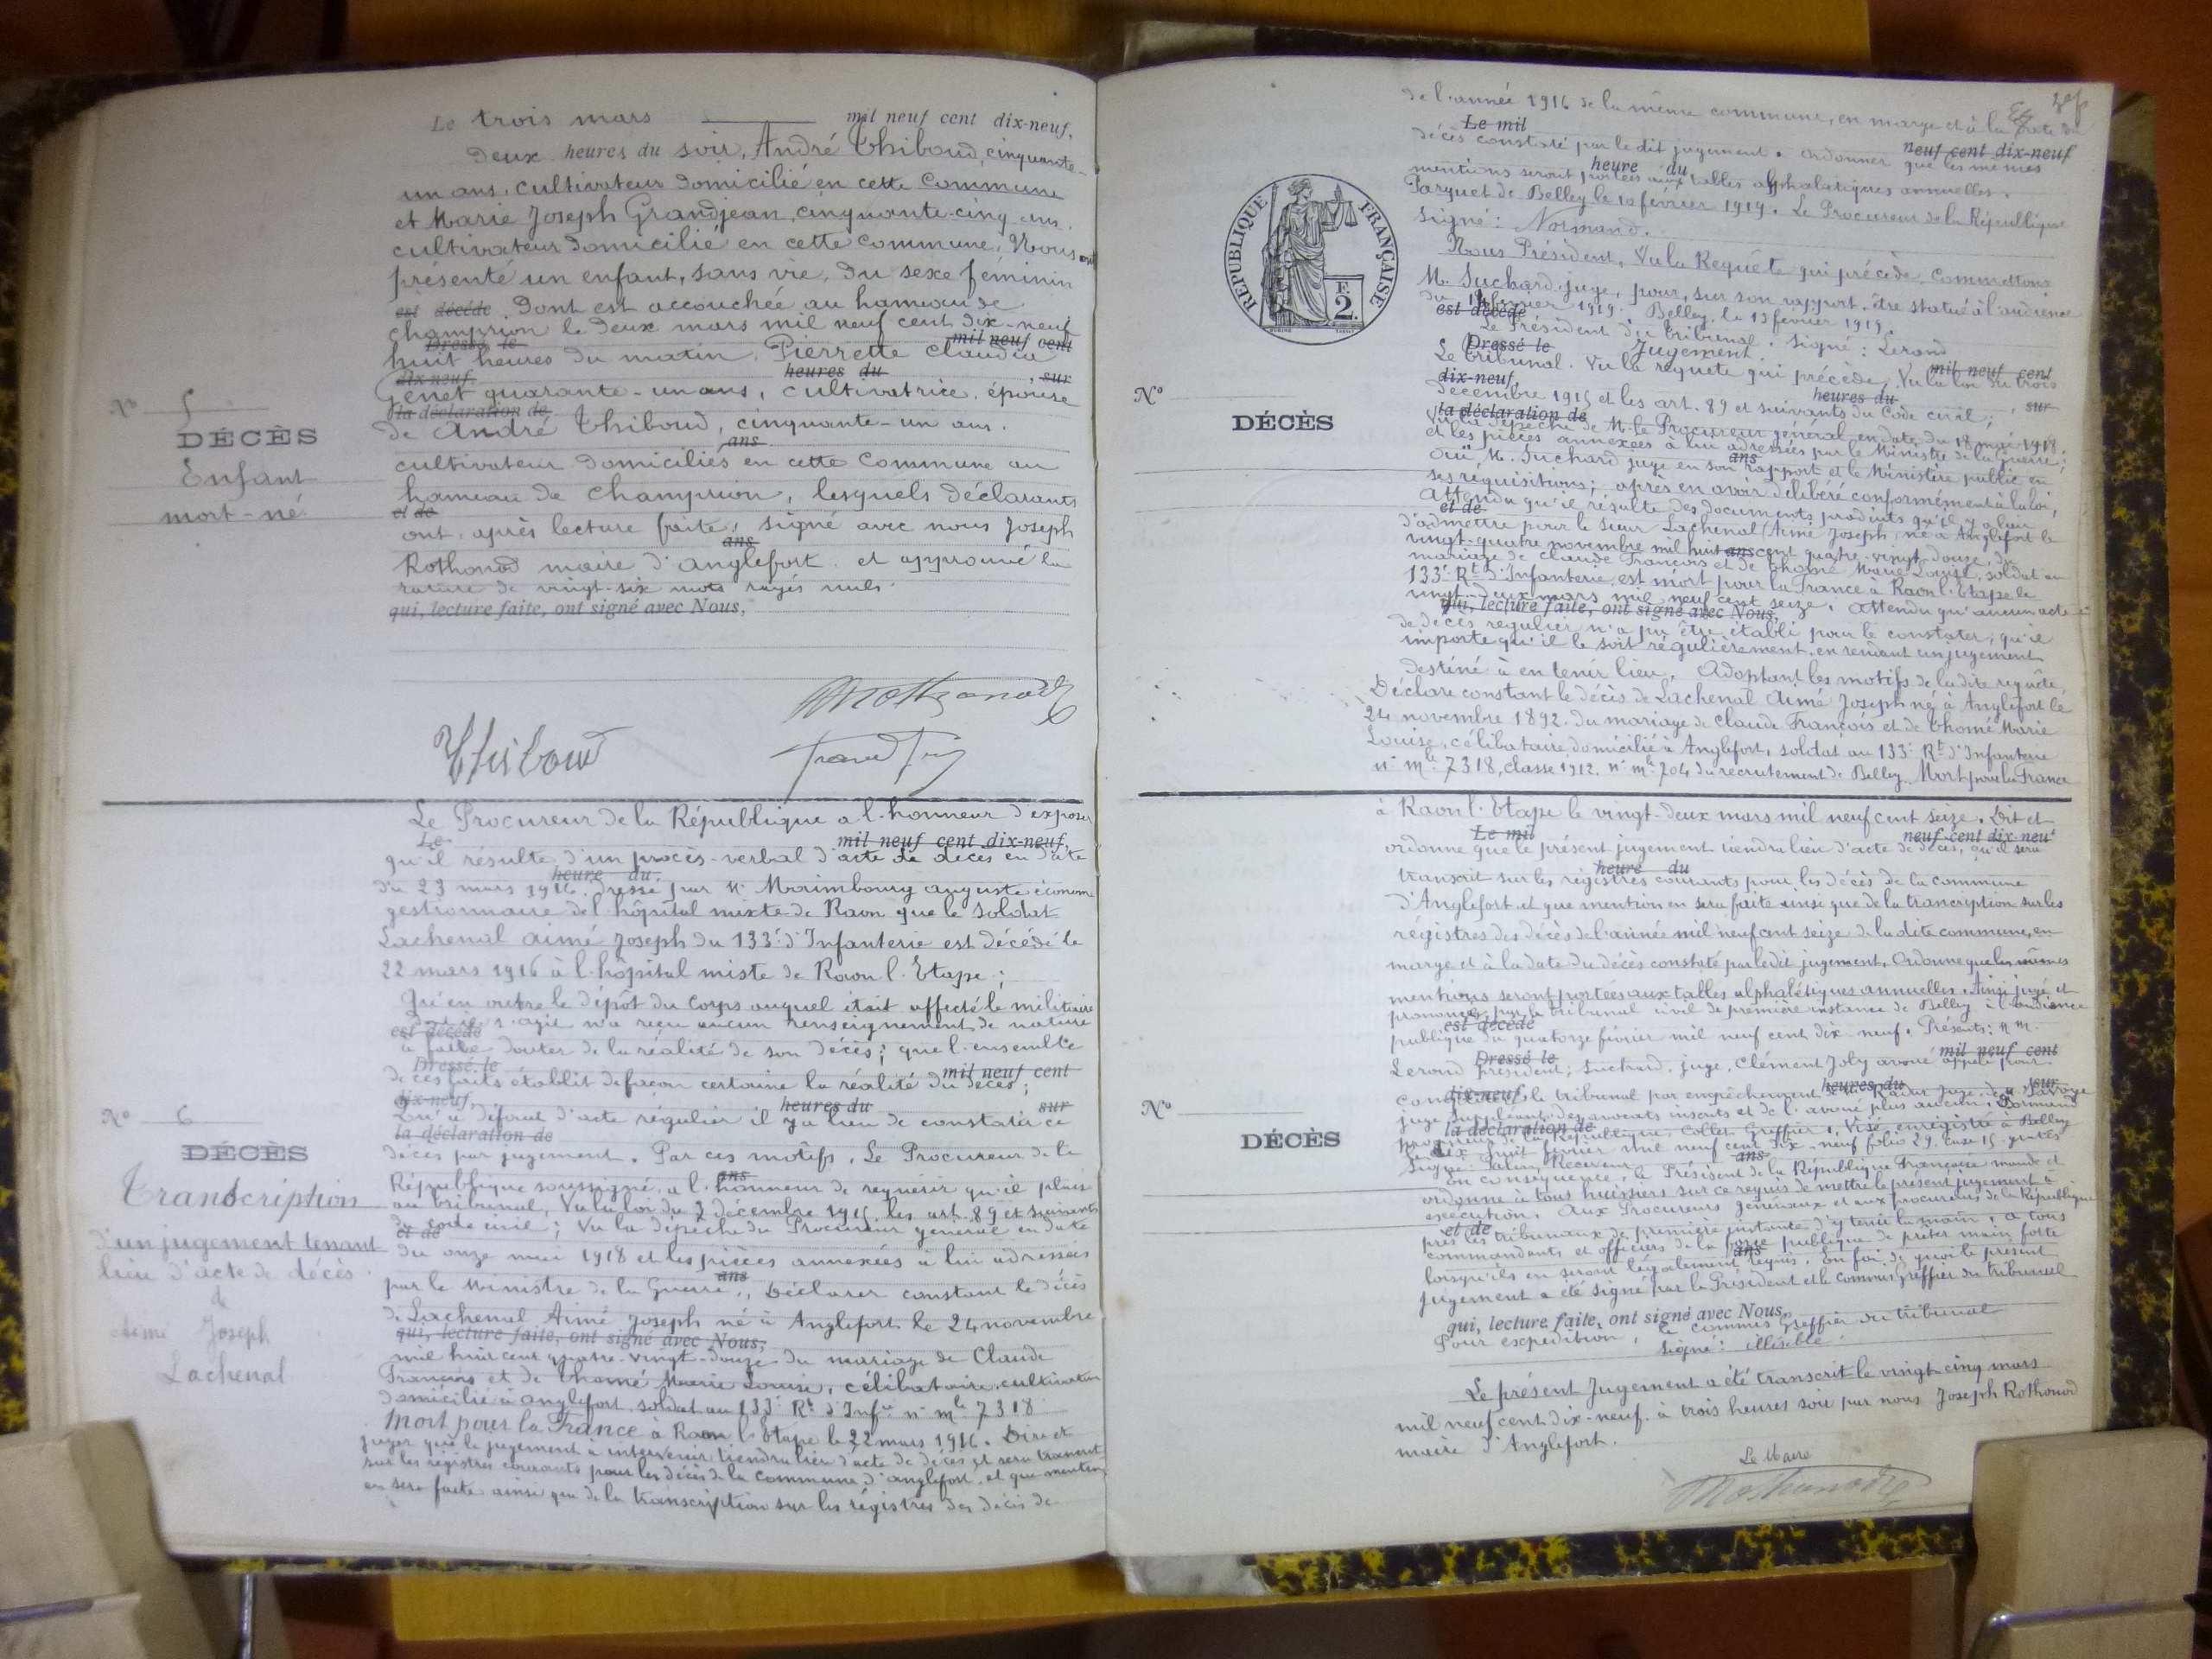 Le trois mars mil neuf cent dix-neuf,
deux heures du soir, André Thiboud, cinquante-
un ans, cultivateur domicilié en cette Commune
et Marie Joseph Grandjean, cinquante-cinq ans
cultivateur domicilié en cette commune, Nous ont
présenté un enfant, sans vie, du sexe féminin
est décédé dont est accouchée au hameau de
champrion le deux mars mil neuf cent dix-neuf
Dressé le mil neuf cent
huit heures du matin, Pierrette Claudia
dix-neuf, heures du , sur
Genet quarante-un ans, cultivatrice, épouse
la déclaration de
de André Thiboud, cinquante-un ans.
ans
cultivateur domiciliés en cette commune au
hameau de Champrion, lesquels déclarants
et de
ont, après lecture faite, signé avec nous Joseph
ans
Rothonod maire d'anglefort et approuvé la
rature de vingt-six mots rayés nuls.
qui, lecture faite, ont signé avec Nous,
Nº 5
DÉCÈS
Enfant
mort-né
Thiboud
Le Procureur de la République a l'honneur d'exposer
Le mil neuf cent dix-neuf,
qu'il résulte d'un procès-verbal d'acte de décès en date
heure du
du 23 mars 1916, dressé par M. Marimbourg auguste économe
gestionnaire de l'hôpital mixte de Raon que le soldat
Lachenal aimé Joseph du 133e d'Infanterie est décédé le
22 mars 1916 à l'hôpital mixte de Raon l'Etape;
Qu'en outre le dépôt du Corps auquel était affecté le militaire
dont il s'agit n'a reçu aucun renseignement de nature
est décédé
à faire douter de la réalité de son décès; que l'ensemble
Dressé le mil neuf cent
de ces faits établit de façon certaine la réalité du décès;
dix-neuf, heures du sur
Qu'à défaut d'acte régulier il y a lieu de constater ce
la déclaration de
décès par jugement. Par ces motifs, Le Procureur de la
ans
République soussigné, a l'honneur de requérir qu'il plaise
au tribunal, Vu la loi du 3 décembre 1915, les art. 89 et suivants
et de
du code civil; Vu la dépêche du Procureur général en date
du onze mai 1918 et les pièces annexées à lui adressées
ans
par le Ministre de la Guerre, Déclarer constant le décès
de Lachenal Aimé Joseph né à Anglefort le 24 novembre
qui, lecture faite, ont signé avec Nous,
mil huit cent quatre-vingt-douze du mariage de Claude
François et de Thomé Marie Louise, célibataire, cultivateur
domicilié à anglefort, soldat au 133e Rt d'Infie n° mle 7318
Mort pour la France à Raon l'Etape le 22 mars 1916. Dire et
juger que le jugement à intervenir tiendra lieu d'acte de décès et sera transcrit
sur les registres courants pour les décès de la commune d'anglefort, et que mention
en sera faite ainsi que de la transcription sur les régistres des décès de
Nº 6
DÉCÈS
Transcription
d'un jugement tenant
lieu d'acte de décès
de
Aimé Joseph
Lachenal
de l'année 1916 de la même commune, en marge et à la date du
Le mil neuf cent dix-neuf
décès constaté par le dit jugement. Ordonner que les mêmes
heure du
mentions seront portées aux tables alphabétiques annuelles.
Parquet de Belley le 10 février 1919. Le Procureur de la République
Signé: Normand.
RÉPUBLIQUE FRANÇAISE
F.
2.
Nous Président, Vu la Requête qui précède, Commettons
M. Suchard juge, pour, sur son rapport, être statué à l'audience
du 14 février 1919. Belley, le 13 février 1919.
est décédé
Le Président du tribunal. Signé: Lerond
Dressé le Jugement. mil neuf cent
Le tribunal. Vu la requête qui précède, Vu la loi du trois
dix-neuf, heures du , sur
décembre 1915 et les art. 89 et suivants du Code civil;
la déclaration de
Vu la dépêche de M. le Procureur général en date du 18 mai 1918.
et les pièces annexées à lui adressées par le Ministre de la Guerre;
ans
Oui M. Suchard juge en son rapport et le Ministère public en
ses réquisitions; après en avoir délibéré conformément à la loi,
Attendu qu'il résulte des documents produits qu'il y a lieu
et de
d'admettre pour le sieur Lachenal Aimé Joseph, né à Anglefort le
vingt-quatre novembre mil huit cent quatre-vingt-douze, du
ans
mariage de Claude François et de Thomé Marie Louise, soldat au
133e Rt d'Infanterie, est mort pour la France à Raon l'Etape le
vingt-deux mars mil neuf cent seize. Attendu qu'aucun acte
qui, lecture faite, ont signé avec Nous,
de décès régulier n'a pu être établi pour le constater, qu'il
importe qu'il le soit régulièrement, en rendant un jugement
destiné à en tenir lieu. Adoptant les motifs de la dite requête,
Déclare constant le décès de Lachenal Aimé Joseph né à Anglefort le
24 novembre 1892 du mariage de Claude François et de Thomé Marie
Louise, célibataire, domicilié à Anglefort, soldat au 133e Rt d'Infanterie
n° mle 7318, classe 1912. n° mle 704 du recrutement de Belley. Mort pour la France
Nº
DÉCÈS
à Raon l'Etape le vingt-deux mars mil neuf cent seize. Dit et
Le mil neuf cent dix-neuf
ordonne que le présent jugement tiendra lieu d'acte de décès, qu'il sera
heure du
transcrit sur les régistres courants pour les décès de la commune
d'Anglefort et que mention en sera faite ainsi que de la trancription sur les
régistres des décès de l'année mil neuf cent seize de la dite commune, en
marge et à la date du décès constaté par le dit jugement. Ordonne que les mêmes
mentions seront portées aux tables alphabétiques annuelles. Ainsi jugé et
prononcé par le tribunal civil de première instance de Belley à l'audience
est décédé
publique du quatorze février mil neuf cent dix-neuf. Présents: M.M.
Dressé le mil neuf cent
Lerond président, Suchard, juge, Clément Joly avoué appelé pour
dix-neuf, heures du , sur
compléter le tribunal par empêchement de juge
la déclaration de
juge suppléant, des avocats inscrits et de l'avoué plus ancien, Normand
procureur de la République, Collet Greffier. Visé, enregistré à Belley
ans
le dix huit février mil neuf cent dix-neuf folio 29, case 15 gratis
Signé: Receveur
En conséquence, le Président de la République Française mande et
ordonne à tous huissiers sur ce requis de mettre le présent jugement à
exécution. Aux Procureurs généraux et aux procureurs de la République
et de
près les tribunaux de première instance d'y tenir la main, à tous
commandants et officiers de la force publique de prêter main forte
ans
lorsqu'ils en seront légalement requis. En foi de quoi le présent
jugement a été signé par le Président et le commis Greffier du tribunal
qui, lecture faite, ont signé avec Nous,
Pour expédition, le commis Greffier du tribunal
Signé: illisible
Le présent Jugement a été transcrit le vingt-cinq mars
mil neuf cent dix-neuf à trois heures soir par nous Joseph Rothonod
maire d'Anglefort.
Le Maire
Nº
DÉCÈS